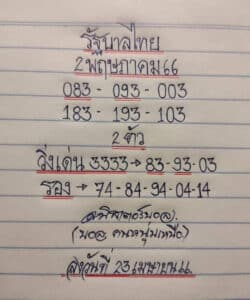 รัฐบาลไทย
2 พฤษภาคม 66
083 - 093 - 003
183 - 193 - 103
2 ตัว
วิ่งเด่น 3333 → 83-93-03
รอง → 74-84-94-04-14
(บอล คนหนุ่มเหนือ)
ลงวันที่ 23 เมษายน 66.